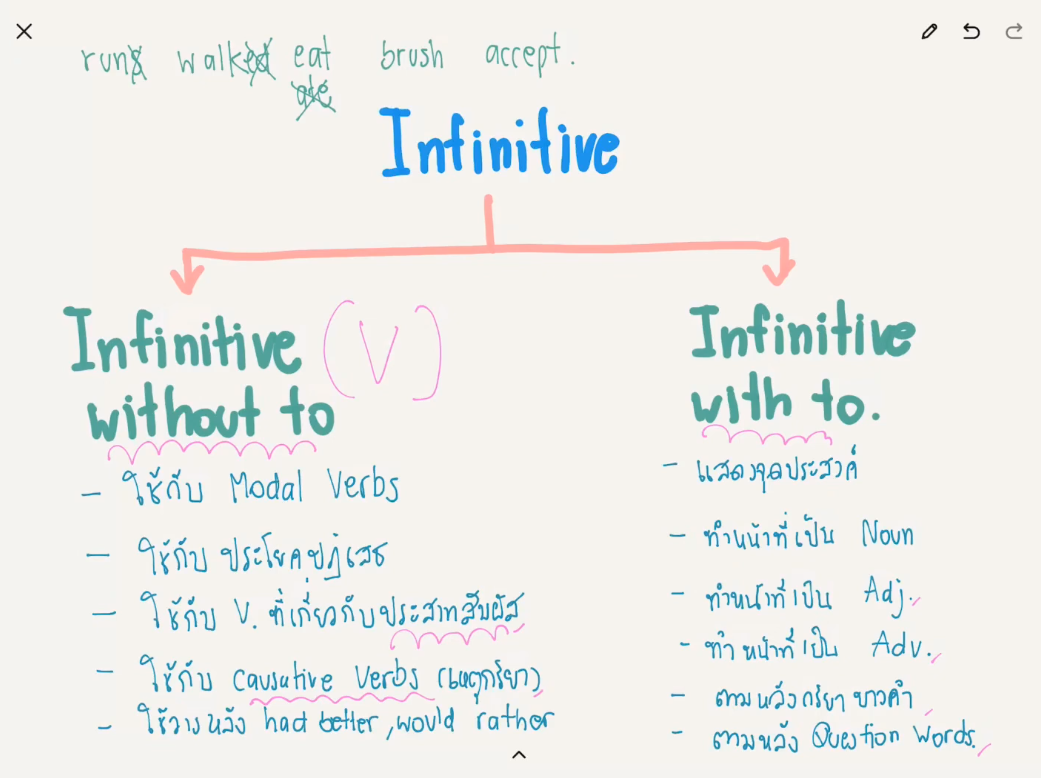 runs walked eat brush accept.
ate
Infinitive
Infinitive (V)
without to
- ใช้กับ Modal Verbs
- ใช้กับ ประโยคปฏิเสธ
- ใช้กับ V. ที่เกี่ยวกับประสาทสัมผัส
- ใช้กับ Causutive Verbs (เหตุกริยา)
- ใช้วางหลัง had better, would rather
Infinitive
with to.
- แสดงจุดประสงค์
- ทำหน้าที่เป็น Noun
- ทำหน้าที่เป็น Adj.
- ทำหน้าที่เป็น Adv.
- ตามหลังกริยาบางคำ
- ตามหลัง Question Words.